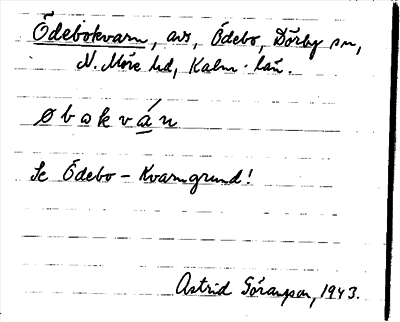 Ödebokvarn, avs, Ödebo, Dörby sn,
N. Möre hd, Kalm. län.
øbokván
Se Ödebo - Kvarngrund!
Astrid Göransson, 1943.